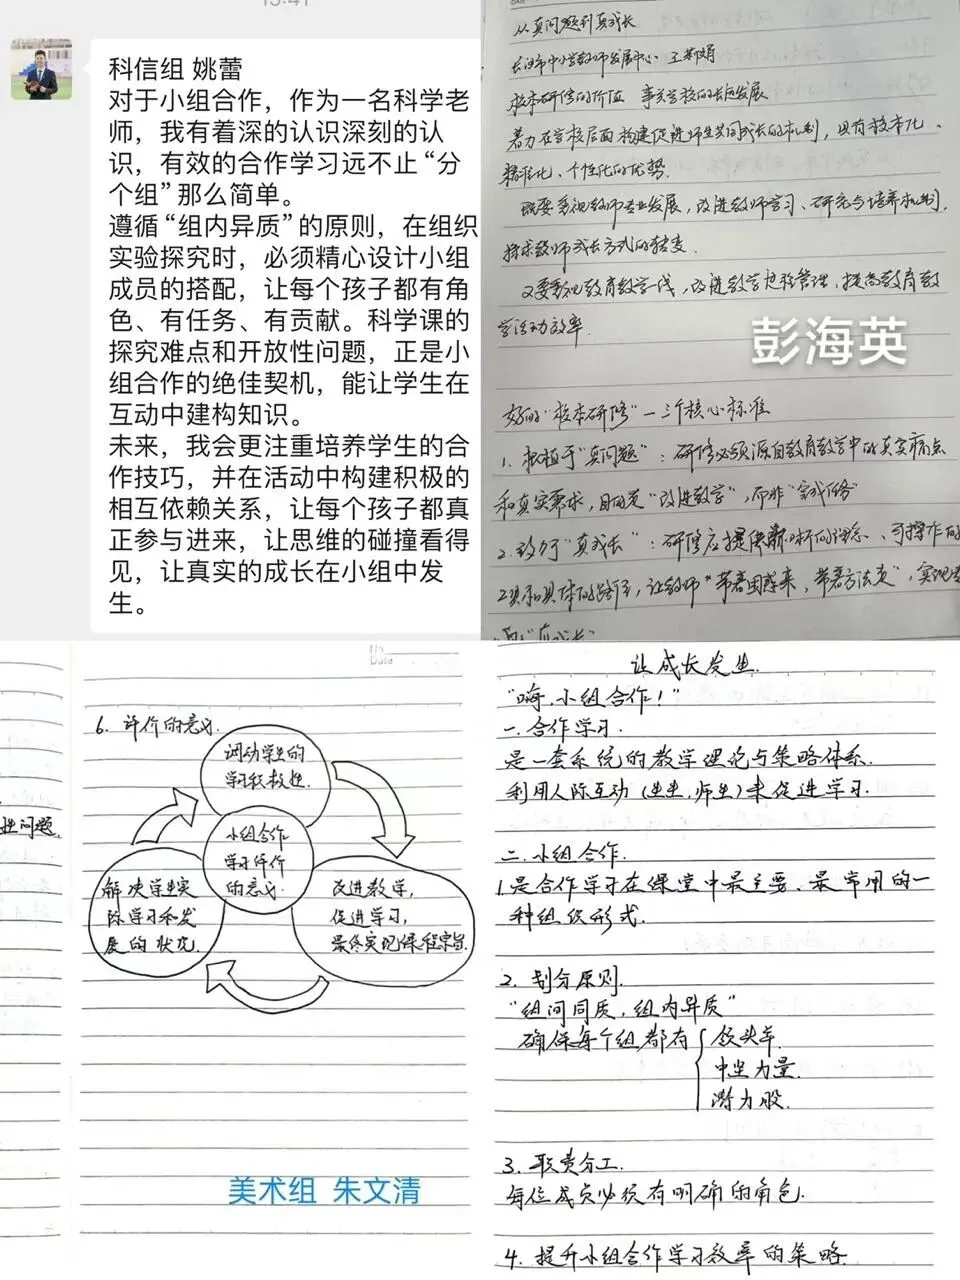 15:41
科信组 姚蕾
对于小组合作，作为一名科学老
师，我有着深的认识深刻的认
识，有效的合作学习远不止“分
个组”那么简单。
遵循“组内异质”的原则，在组织
实验探究时，必须精心设计小组
成员的搭配，让每个孩子都有角
色、有任务、有贡献。科学课的
探究难点和开放性问题，正是小
组合作的绝佳契机，能让学生在
互动中建构知识。
未来，我会更注重培养学生的合
作技巧，并在活动中构建积极的
相互依赖关系，让每个孩子都真
正参与进来，让思维的碰撞看得
见，让真实的成长在小组中发
生。
从真问题到真成长
长沙市中小学教师发展中心 王莉娟
校本研修的价值 事关学校的长远发展
着力在学校层面构建促进师生共同成长的机制，具有校本化、
精准化、个性化的优势.
既要重视教师专业发展，改进教师学习、研究与培养机制，
探求教师成长方式的转变.
又要重视教育教学一线，改进教学过程管理，提高教育教
学活动效率.
彭海英
好的“校本研修”一三个核心标准
1. 根植于“真问题”：研修必须源自教育教学中的真实痛点
和真实需求，目的是“改进教学”，而非“完成任务”
2. 致力于“真成长”：研修应提供新的理念、可操作的
工具和具体的路径，让教师“带着困惑来，带着方法走”，实现
“真成长”
No
Date
6. 评价的意义.
调动学生的
学习积极性.
小组合作
学习评价
的意义.
解决学生实
际学习和发
展的状况.
改进教学，
促进学习，
最终实现课程宗旨.
性问题.
美术组 朱文清
让成长发生.
“嗨，小组合作！”
一. 合作学习.
是一套系统的教学理论与策略体系.
利用人际互动（生生，师生）来促进学习.
二. 小组合作.
1. 是合作学习在课堂中最主要、最常用的一
种组织形式.
2. 划分原则.
“组间同质，组内异质”
确保每个组都有 { 领头羊.
中坚力量.
潜力股.
3. 职责分工.
每位成员必须有明确的角色.
4. 提升小组合作学习效率的策略.